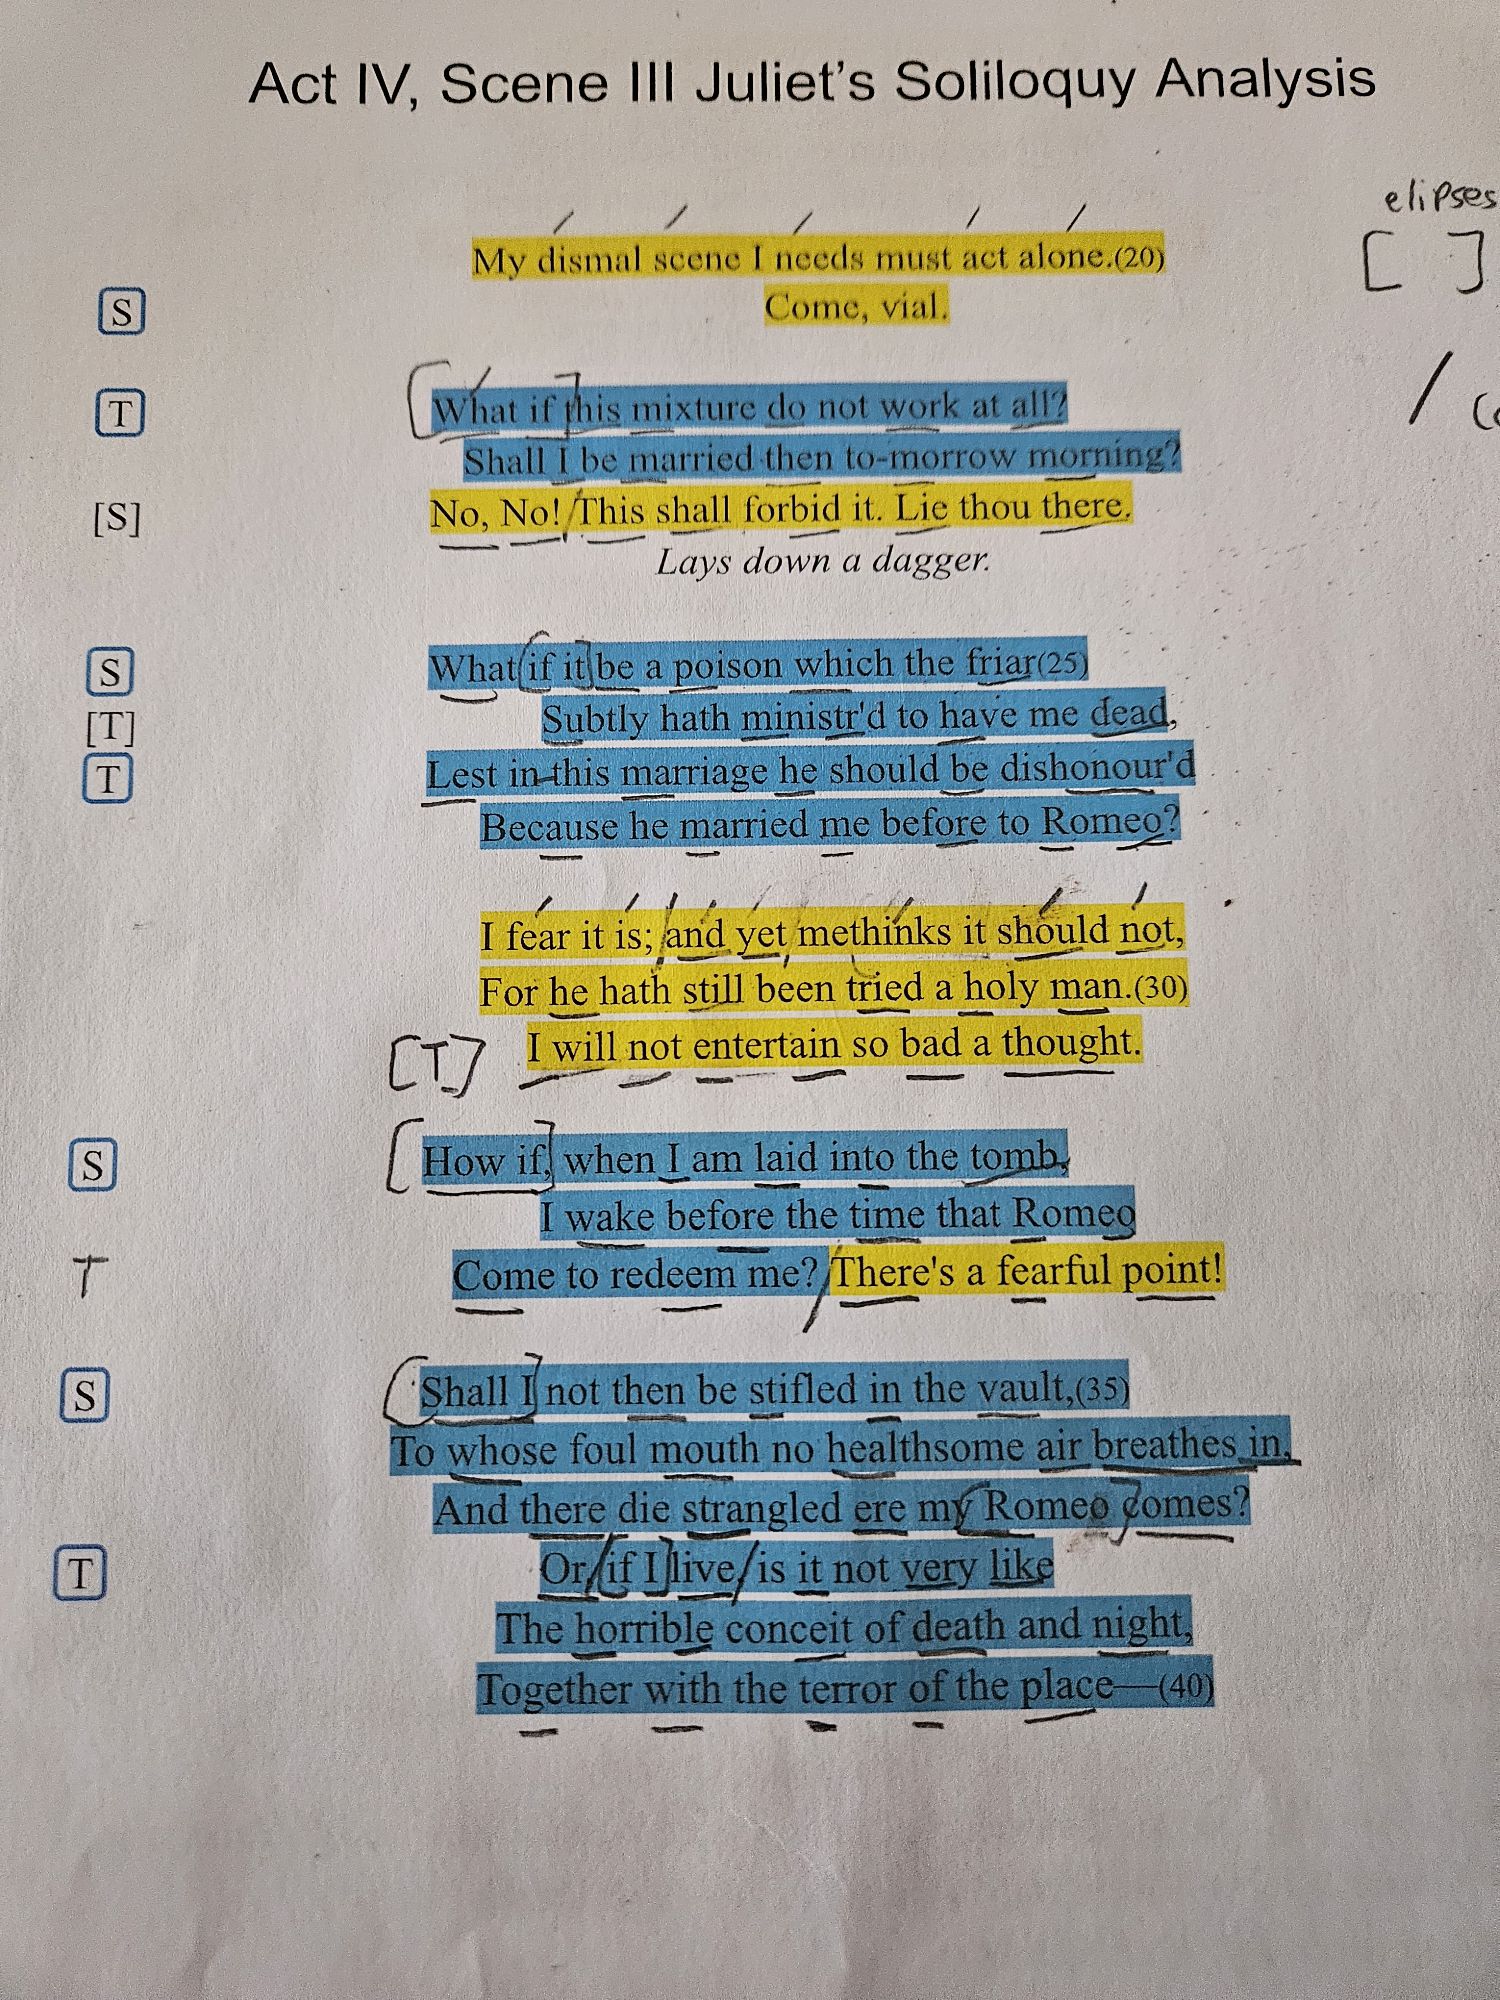 Act IV, Scene III Juliet's Soliloquy Analysis
elipses
[ ]
My dismal scene I needs must act alone.(20)
S Come, vial.
/
T What if this mixture do not work at all?
Shall I be married then to-morrow morning?
[S] No, No! This shall forbid it. Lie thou there.
Lays down a dagger.
S What if it be a poison which the friar(25)
[T] Subtly hath ministr'd to have me dead,
T Lest in this marriage he should be dishonour'd
Because he married me before to Romeo?
I fear it is; and yet methinks it should not,
For he hath still been tried a holy man.(30)
[T] I will not entertain so bad a thought.
S How if, when I am laid into the tomb,
I wake before the time that Romeo
T Come to redeem me? There's a fearful point!
S Shall I not then be stifled in the vault,(35)
To whose foul mouth no healthsome air breathes in,
And there die strangled ere my Romeo comes?
T Or, if I live, is it not very like
The horrible conceit of death and night,
Together with the terror of the place—(40)